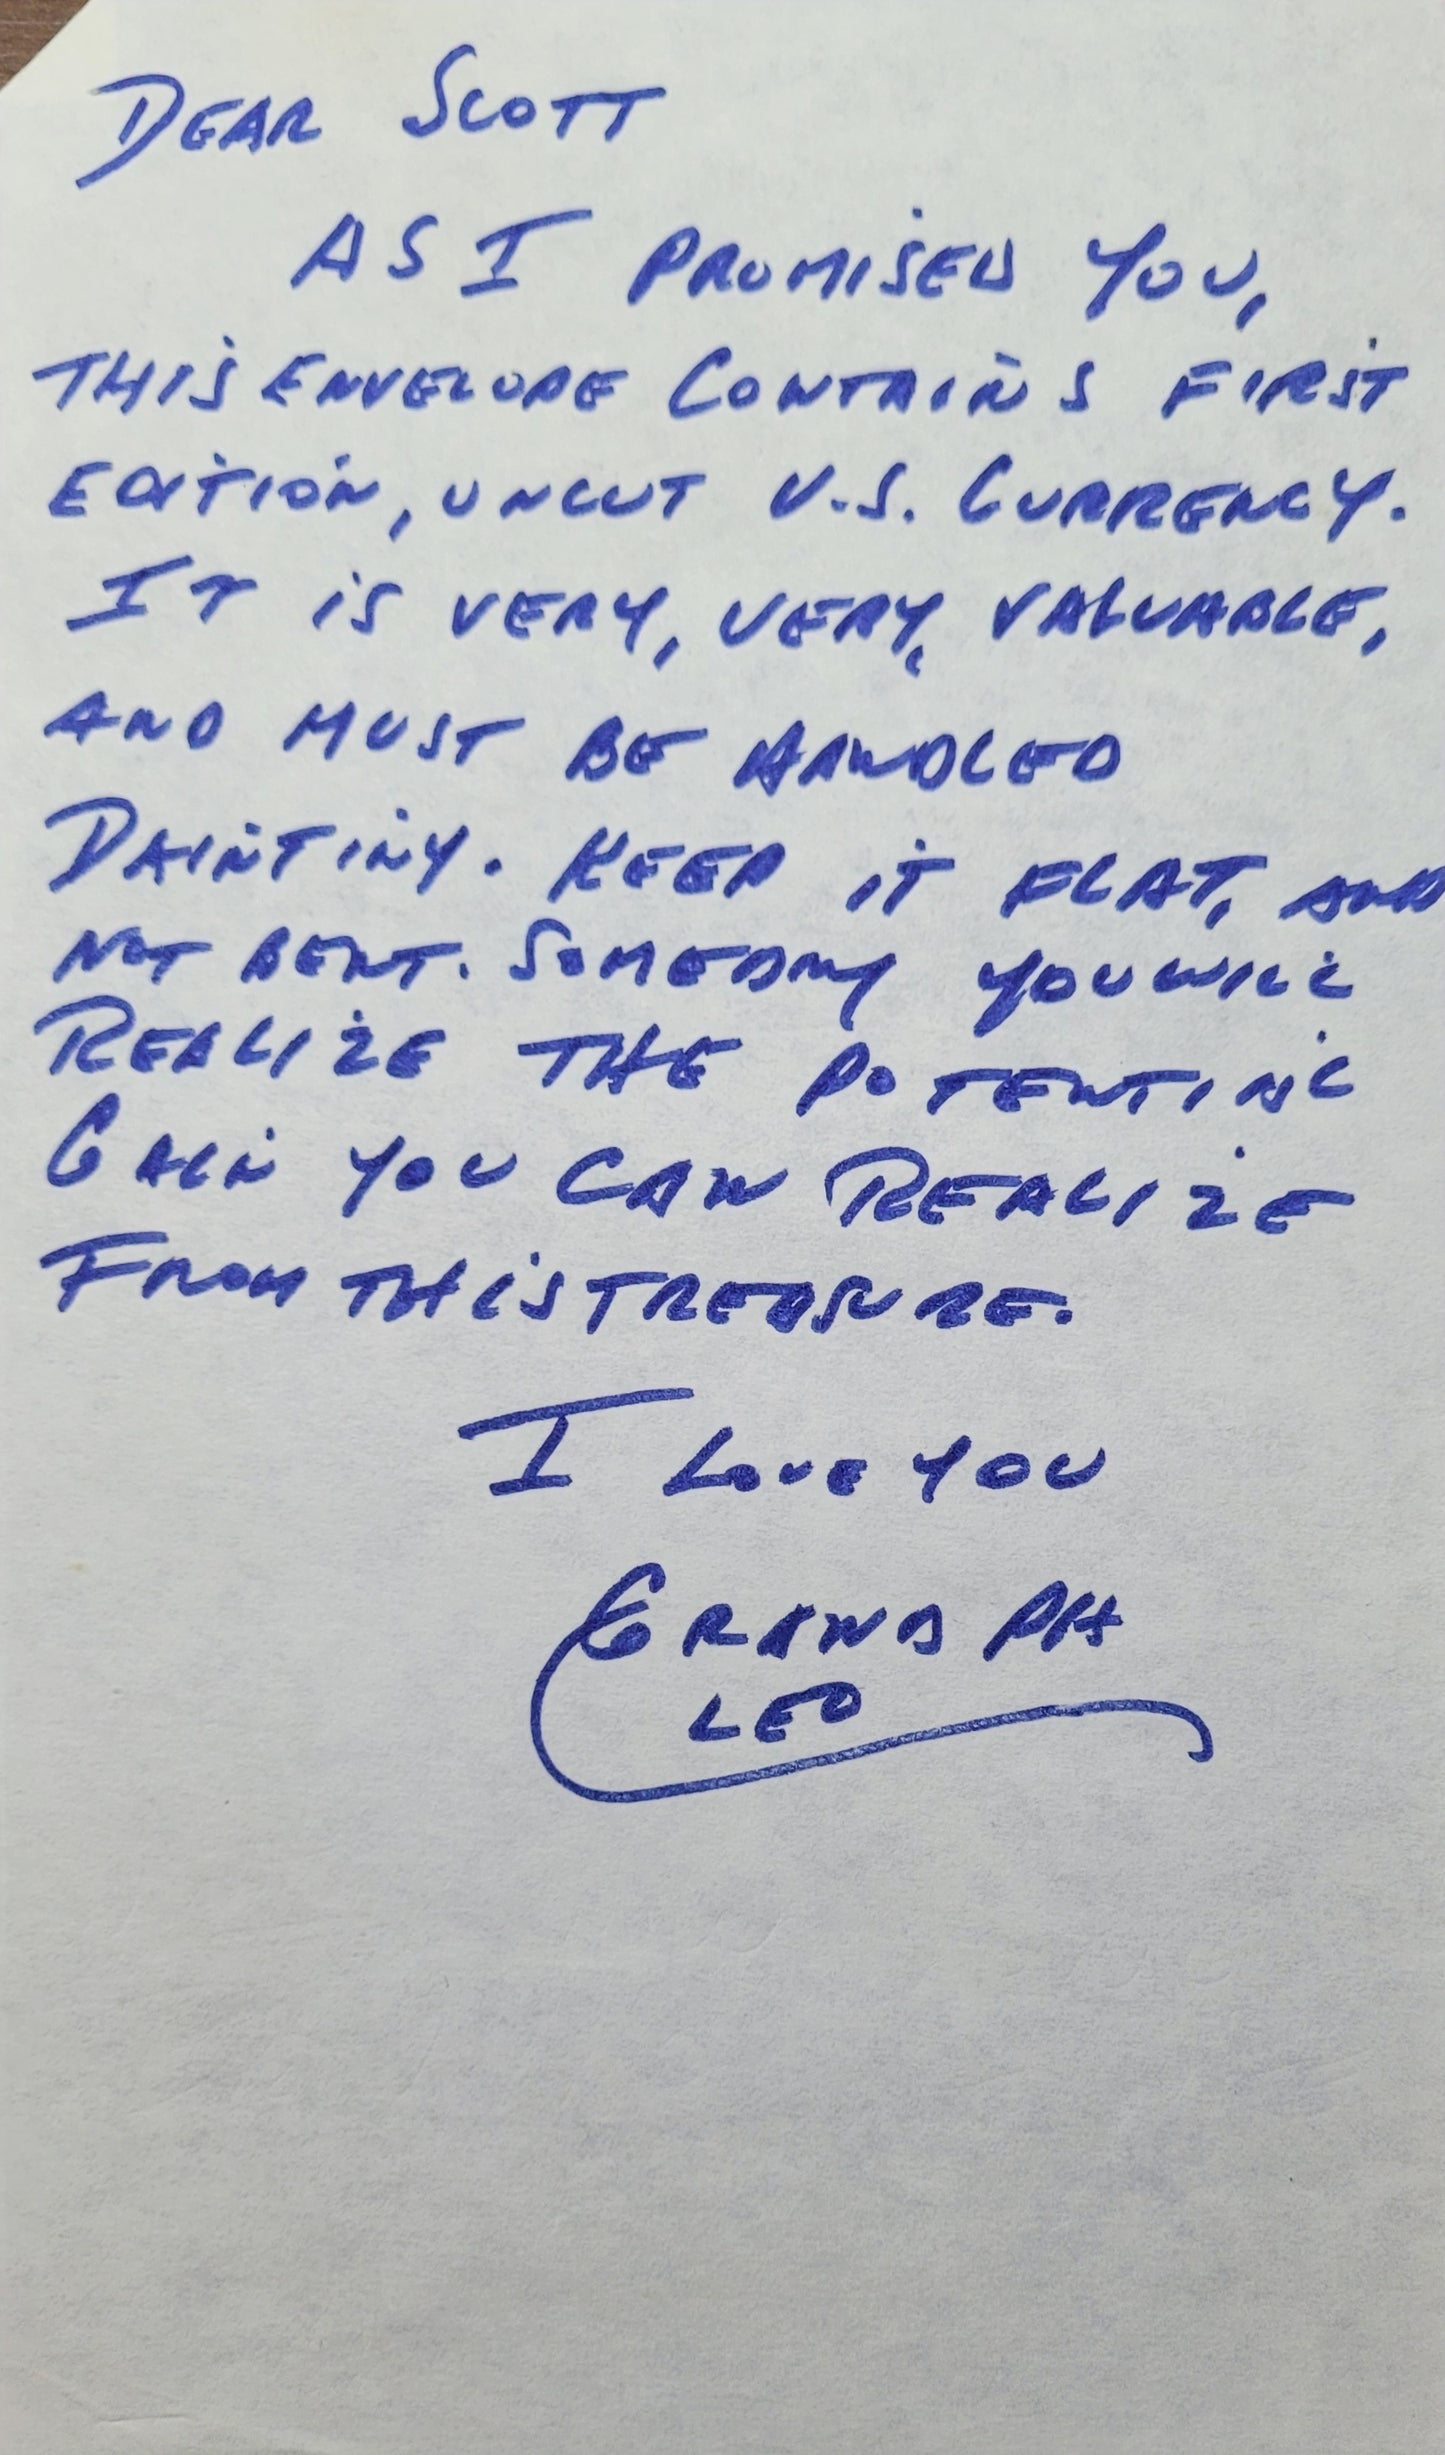 DEAR SCOTT
AS I PROMISED YOU,
THIS ENVELOPE CONTAINS FIRST
EDITION, UNCUT U.S. CURRENCY.
IT IS VERY, VERY, VALUABLE,
AND MUST BE HANDLED
DAINTINY. KEEP IT FLAT, AND
NOT BENT. SOMEDAY YOU WILL
REALIZE THE POTENTIAL
GAIN YOU CAN REALIZE
FROM THIS TREASURE.
I LOVE YOU
GRAND PA
LEO